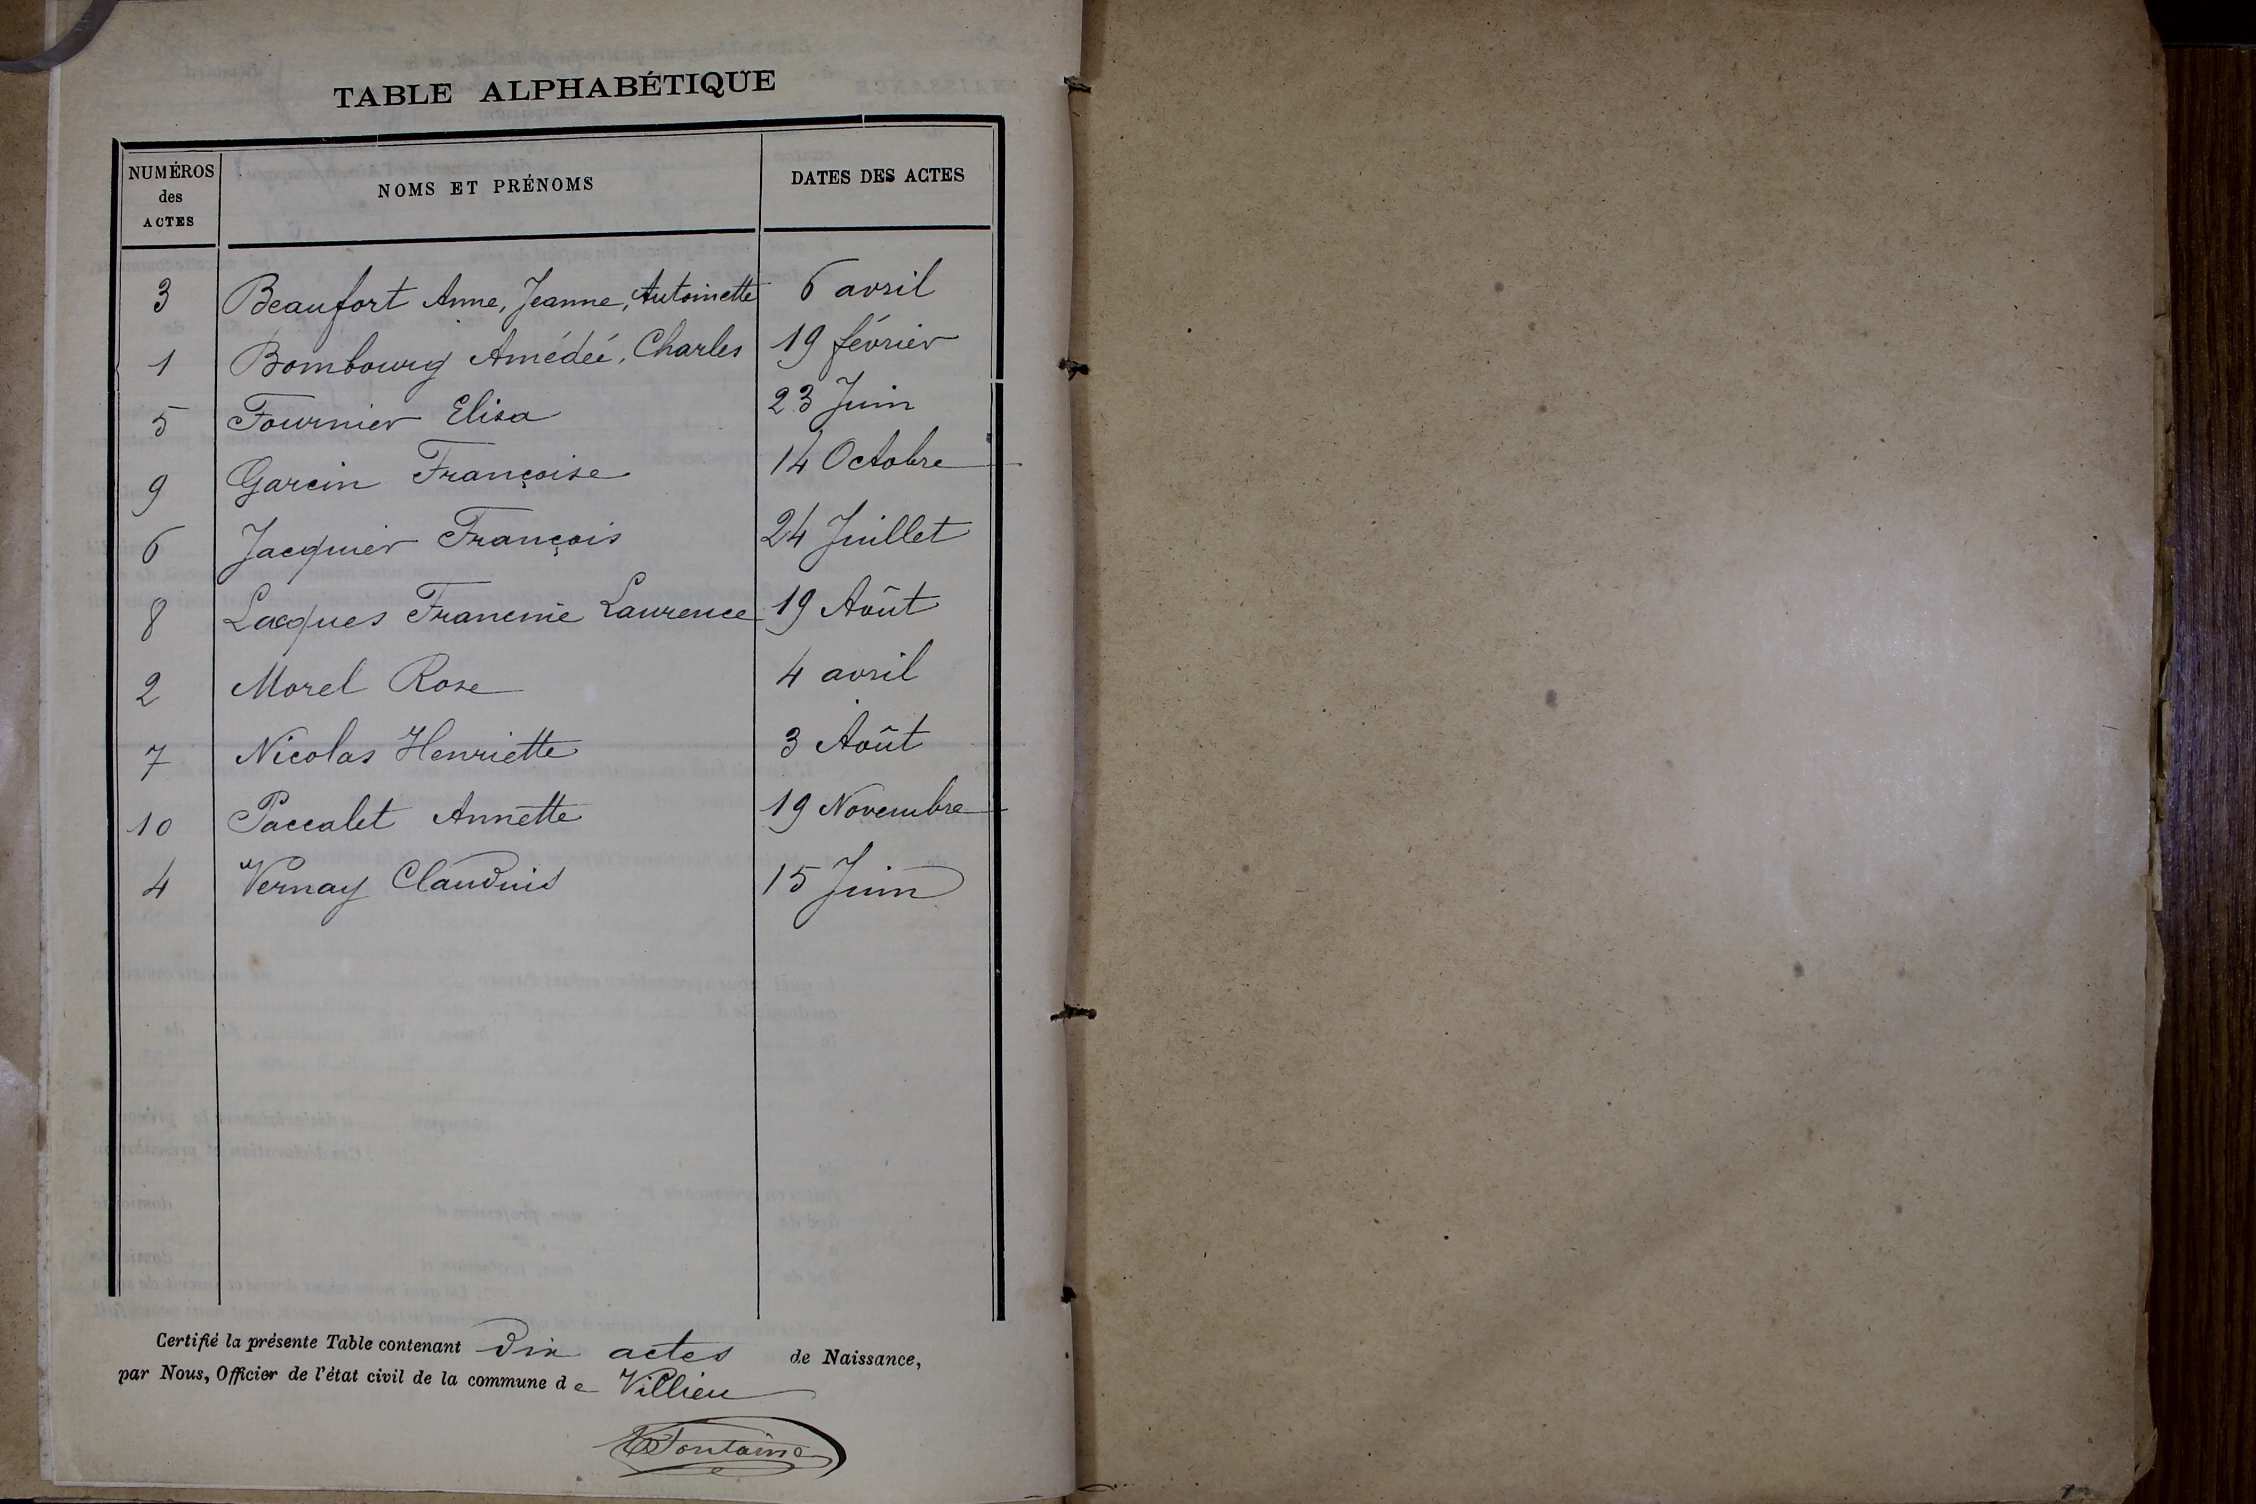 TABLE ALPHABÉTIQUE
NUMÉROS des ACTES NOMS ET PRÉNOMS DATES DES ACTES
3 Beaufort Anne, Jeanne, Antoinette 6 avril
1 Bombourg Amédée, Charles 19 février
5 Fournier Elisa 23 Juin
9 Garcin Françoise 14 Octobre
6 Jacquier François 24 Juillet
8 Lacques Francine Laurence 19 Août
2 Morel Rose 4 avril
7 Nicolas Henriette 3 Août
10 Paccalet Annette 19 Novembre
4 Vernay Claudius 15 Juin
Certifié la présente Table contenant dix actes de Naissance,
par Nous, Officier de l'état civil de la commune de Villieu
Fontaine